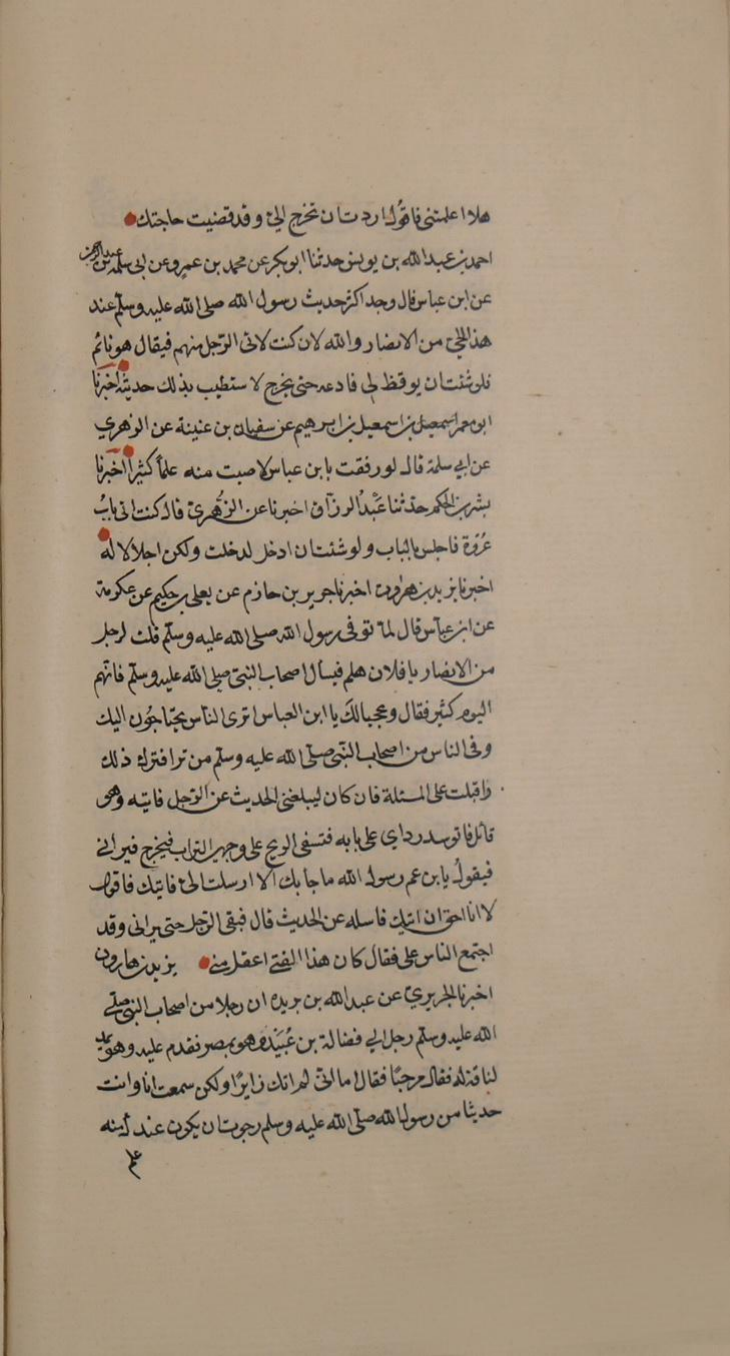 هلا اعلمتنى فاقول اردت ان تخرج الي وقد قضيت حاجتك
احمد بن عبد الله بن يونس حدثنا ابو بكر عن محمد بن عمرو عن ابى سلمة بن عبد الرحمن
عن ابن عباس قال وجد اكثر حديث رسول الله صلى الله عليه وسلم عند
هذا الحي من الانصار والله لان كنت لاتى الرجل منهم فيقال هو نائم
فلو شئت ان يوقظ لي فادعه حتى يخرج لاستطيب بذلك حديثه اخبرنا
ابو معمر اسمعيل بن اسمعيل بن ابرهيم عن سفيان بن عنينة عن الزهري
عن ابي سلمة قال لو رفقت بابن عباس لاصبت منه علماً كثيراً اخبرنا
بشر بن الحكم حدثنا عبدُ الرزاق اخبرنا عن الزُهري قال كنت اتى بابُ
عُروة فاجلس بالباب ولو شئت ان ادخل لدخلت ولكن اجلالا له
اخبرنا يزيد بن هارون اخبرنا جرير بن حازم عن يعلى بن حكيم عن عكرمة
عن ابن عباس قال لما توفى رسول الله صلى الله عليه وسلم قلت لرجل
من الانصار يا فلان هلم فيسال اصحاب النبي صلى الله عليه وسلم فانهم
اليوم كثير فقال وعجبا لكَ يا ابن العباس اترى الناس يحتاجُون اليك
وفى الناس من اصحاب النبى صلى الله عليه وسلم من ترا فترك ذلك
واقبلت على المسئلة فان كان ليبلغنى الحديث عن الرجل فاتيه وهو
قائل فاتوسد رداي على بابه فتسفى الريح على وجهى التراب فيخرج فيرانى
فيقولُ يا بن عم رسول الله ما جا بك الا ارسلت الي فاتيك فاقول
لا انا احق ان اتيك فاسله عن الحديث قال فبقى الرجل حتى يرانى وقد
اجتمع الناس على فقال كان هذا الفتى اعقل مني يزيد بن هارون
اخبرنا الجريري عن عبد الله بن بريده ان رجلا من اصحاب النبى صلى
الله عليه وسلم رحل الى فضالة بن عُبيَد وهو بمصر فقدم عليه وهو يمد
لناقة له فقال مرحبًا فقال اما انى لم اتك زايرًا ولكن سمعت انا وانت
حديثا من رسول الله صلى الله عليه وسلم رجوت ان يكون عندك منه
علم